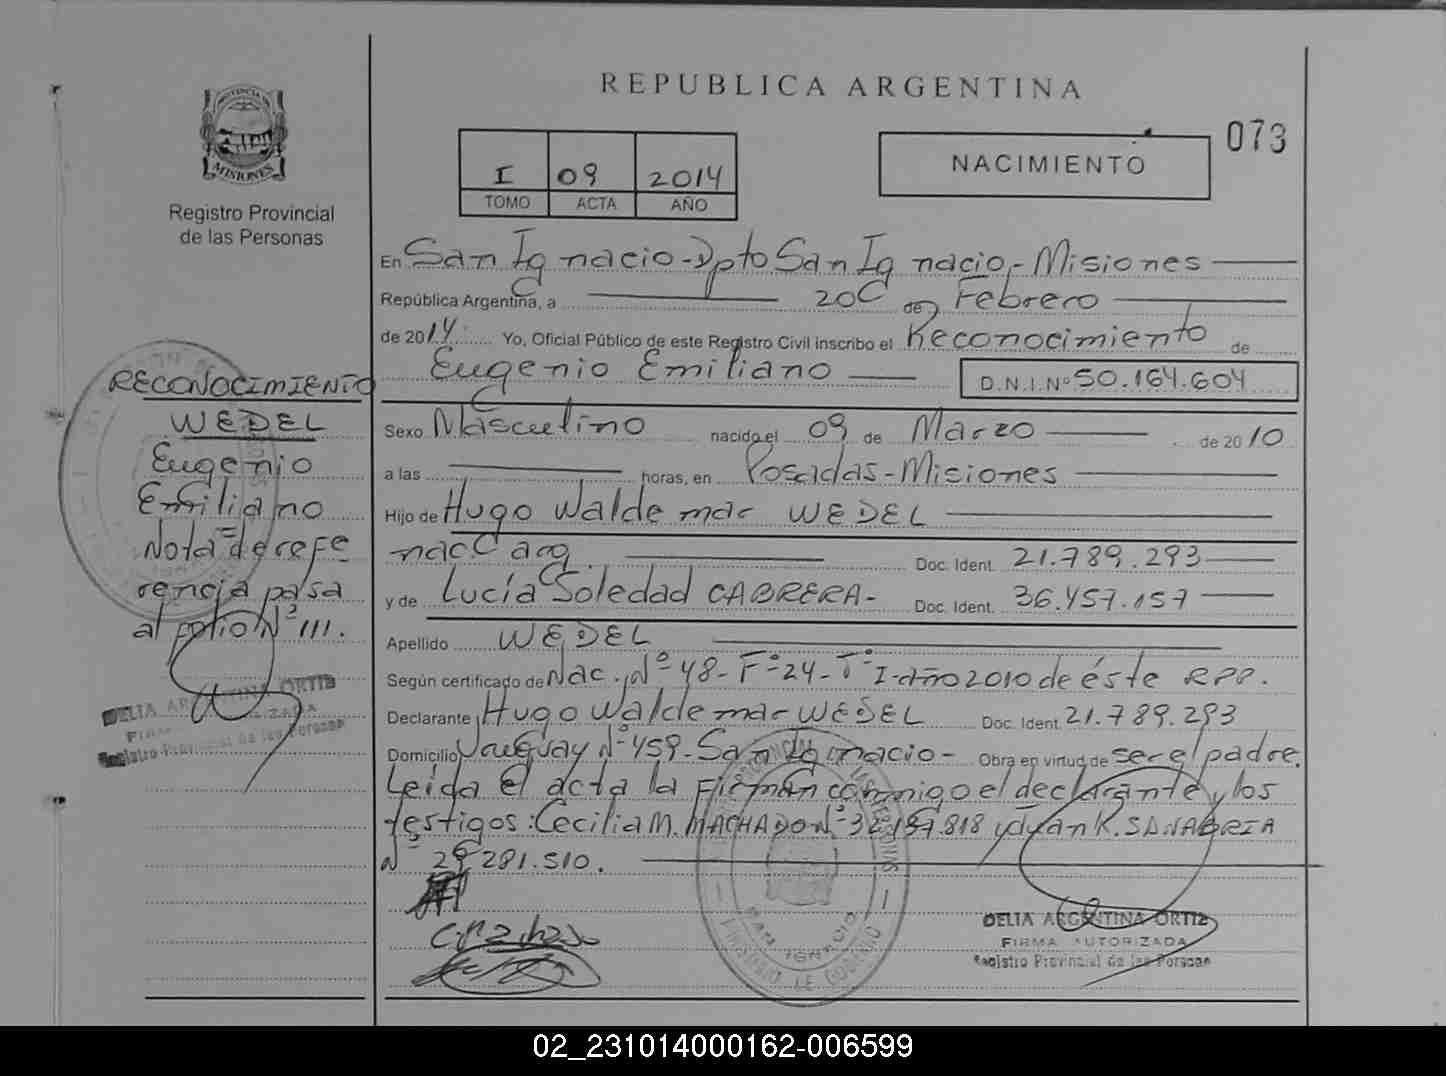 REPUBLICA ARGENTINA
073
I 09 2014
TOMO ACTA AÑO
NACIMIENTO
PROVINCIA DE
MISIONES
Registro Provincial
de las Personas
En San Ignacio - Dpto San Ignacio, - Misiones
República Argentina, a 20 de Febrero
de 2014 Yo, Oficial Público de este Registro Civil inscribo el Reconocimiento de
Eugenio Emiliano D.N.I.Nº 50.164.604
Sexo Masculino nacido el 09 de Marzo de 2010
a las horas, en Posadas - Misiones
Hijo de Hugo Waldemar WEDEL
nac. arg. Doc. Ident. 21.789.293
y de Lucía Soledad CABRERA - Doc. Ident. 36.457.157
Apellido WEDEL
Según certificado de Nac. Nº 48 - Fº 24 - Tº I - año 2010 de éste RPP.
Declarante Hugo Waldemar WEDEL Doc. Ident. 21.789.293
Domicilio Uruguay Nº 459 - San Ignacio - Obra en virtud de ser el padre.
Leída el acta la firman conmigo el declarante y los
testigos: Cecilia M. MACHADO Nº SANABRIA
Nº 281.510.
DELIA ARGENTINA ORTIZ
FIRMA AUTORIZADA
Registro Provincial de las Personas
RECONOCIMIENTO
WEDEL
Eugenio
Emiliano
Nota de refe
rencia pasa
al folio Nº 111.
DELIA ARGENTINA ORTIZ
FIRMA AUTORIZADA
Registro Provincial de las Personas
SAN IGNACIO
MINISTERIO DE GOBIERNO
02_231014000162-006599